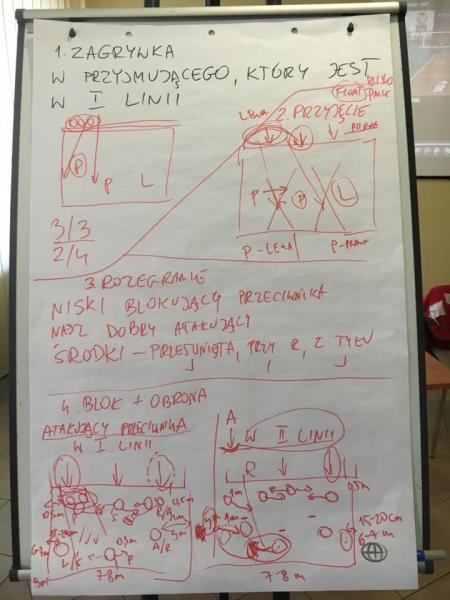 1. ZAGRYWKA
W PRZYJMUJĄCEGO, KTÓRY JEST
W I LINII
P
P L
3/3
2/4
LEWA 2. PRZYJĘCIE
FLOAT
P P L
P-LEWA P-PRAWA
3. ROZEGRANIE
NISKI BLOKUJĄCY PRZECIWNIKA
NASZ DOBRY ATAKUJĄCY
ŚRODKI - PRZESUNIĘTA, TRZY R, Z TYŁU
4. BLOK + OBRONA
ATAKUJĄCY PRZECIWNIKA
W I LINII
A
W II LINII
R
0,5m
0,5m
R/A
A/R
L/S
P
7-8m
0,5m
15-20cm
6-7m
7-8m